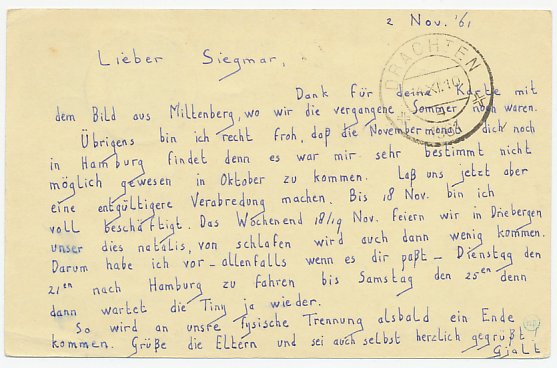 2 Nov. '61
Lieber Siegmar,
DRACHTEN
Dank für deine Karte mit
dem Bild aus Miltenberg, wo wir die vergangene Sommer noch waren.
Übrigens bin ich recht froh, daß die Novembermonat dich noch
in Hamburg findet denn es war mir sehr bestimmt nicht
möglich gewesen in Oktober zu kommen. Laß uns jetzt aber
eine entgültigere Verabredung machen. Bis 18 Nov. bin ich
voll beschäftigt. Das Wochenend 18/19 Nov. feiern wir in Driebergen
unser dies natalis, von schlafen wird auch dann wenig kommen.
Darum habe ich vor – allenfalls wenn es dir paßt – Dienstag den
21en nach Hamburg zu fahren bis Samstag den 25en denn
dann wartet die Tiny ja wieder.
So wird an unsre fysische Trennung alsbald ein Ende
kommen. Grüße die Eltern und sei auch selbst herzlich gegrüßt!
Gjalt